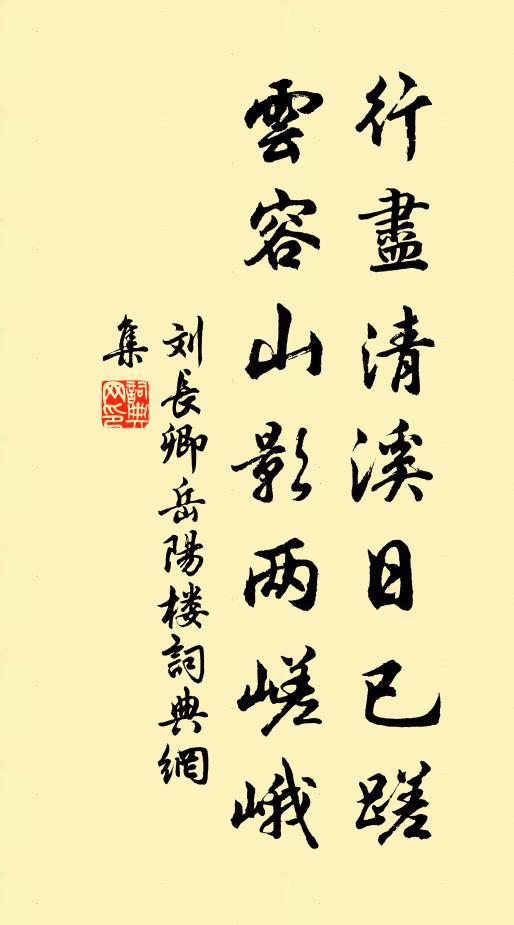 行盡清溪日已蹉
雲容山影两嵯峨
刘長卿岳陽楼詞典網
集
詞典網印